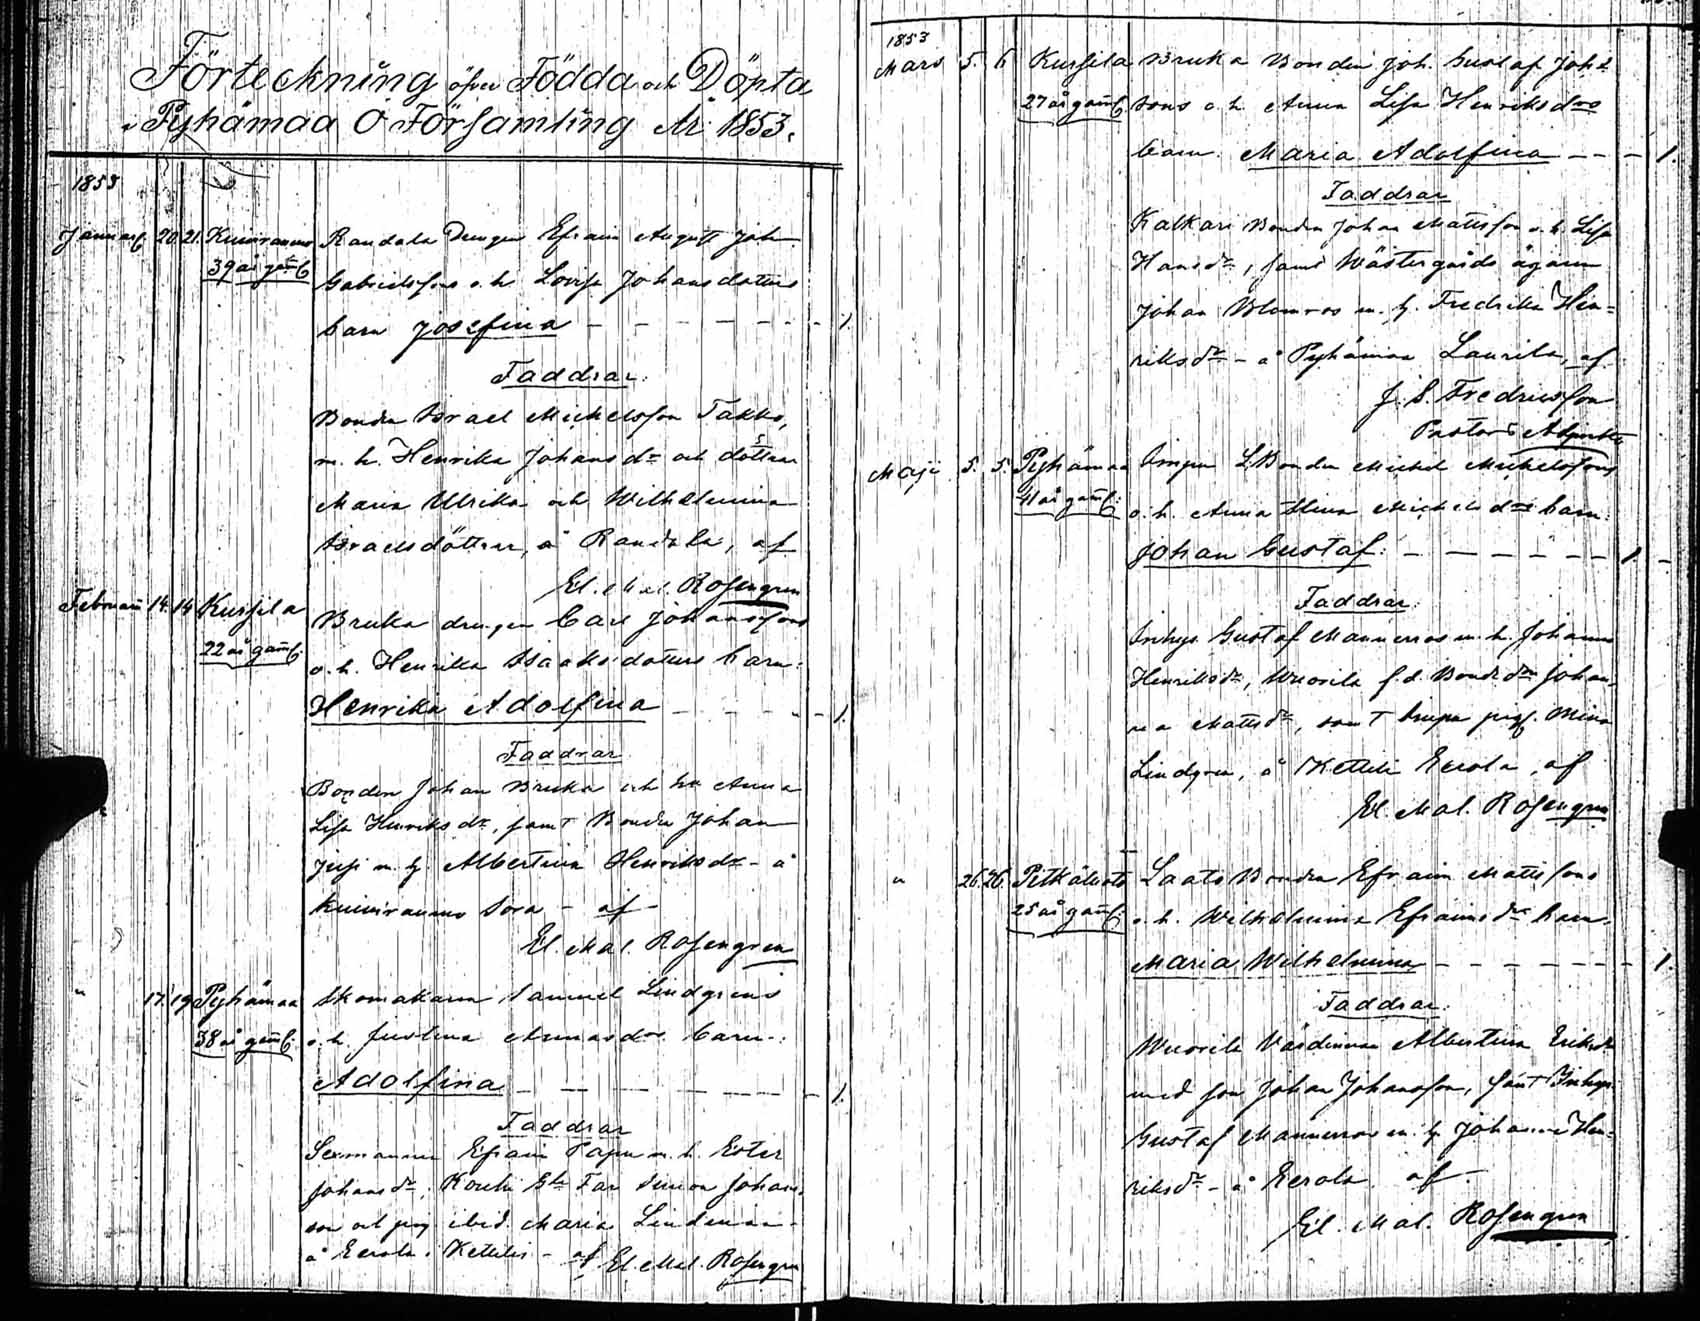 Förteckning öfver Födda och Döpta
i Pyhämaa Ö Församling År 1853.
1853
Januari 20. 21. Randala Drengen Efraim August Joh
39 år gaml. Gabrielssons o. h. Lovisa Johansdotters
barn Josefina 1.
Faddrar.
Bonden Israel Michelsson Takko,
m. h. Henrika Johansdr och döttrar
Maria Ulrika och Wilhelmina
Israelsdöttrar, å Randala, af
El. Mal. Rosengren
Februari 14. 14 Kursila Bruka drengen Carl Johanssons
22 år gaml. o. h. Henrika Isaaksdotters barn:
Henrika Adolfina 1.
Faddrar
Bonden Johan Bruka och h. Anna
Lisa Henriksdr, samt Bonden Johan
m. h. Albertina Henriksdr - å
Sora - af
El. Mal. Rosengren
" 17. 19 Pyhämaa Skomakaren Samuel Lindgrens
38 år gaml. o. h. Justina barn:
Adolfina 1.
Faddrar
Efraim m. h. Ester
Johansdr, Far Simon Johans
son och pig. ibid. Maria
å Eerola i Kettelis - af El. Mal. Rosengren
1853
Mars 5. 6 Kursila Bruka Bonden Joh. Gustaf Johs
27 år gaml. sons o. h. Anna Lisa Henriksdrs
barn. Maria Adolfina 1.
Faddrar
Kalkari Bonden Johan Mattsson o. h. Lisa
Hansdr, samt Wästergårds ägaren
Johan Blomros m. h. Fredrika Hen=
riksdr - å Pyhämaa Laurila, af
J. S. Fredricsson
Pastors Adjunkt
Maji 5. 5. Pyhämaa Bonden Michel Michelssons
41 år gaml. o. h. Anna Michelsdrs barn:
Johan Gustaf. 1
Faddrar.
Inhys. Gustaf Mannerros m. h. Johanna
Henriksdr, Wuorila f.d. Bonde Johan
na Mattsdr, samt pig. Mina
Lindgren, å Kettili Eerola, af
El. Mal. Rosengren
" 26. 26. Pitkäluoto Laato Bonden Efraim Mattssons
25 år gaml. o. h. Wilhelmina Efraimsdrs barn.
Maria Wilhelmina 1
Faddrar.
Wuorila Värdinnan Albertina Eriksdr
med son Johan Johansson, samt Inhys.
Gustaf Mannerros m. h. Johanna Hen=
riksdr - å Eerola af
El. Mal. Rosengren